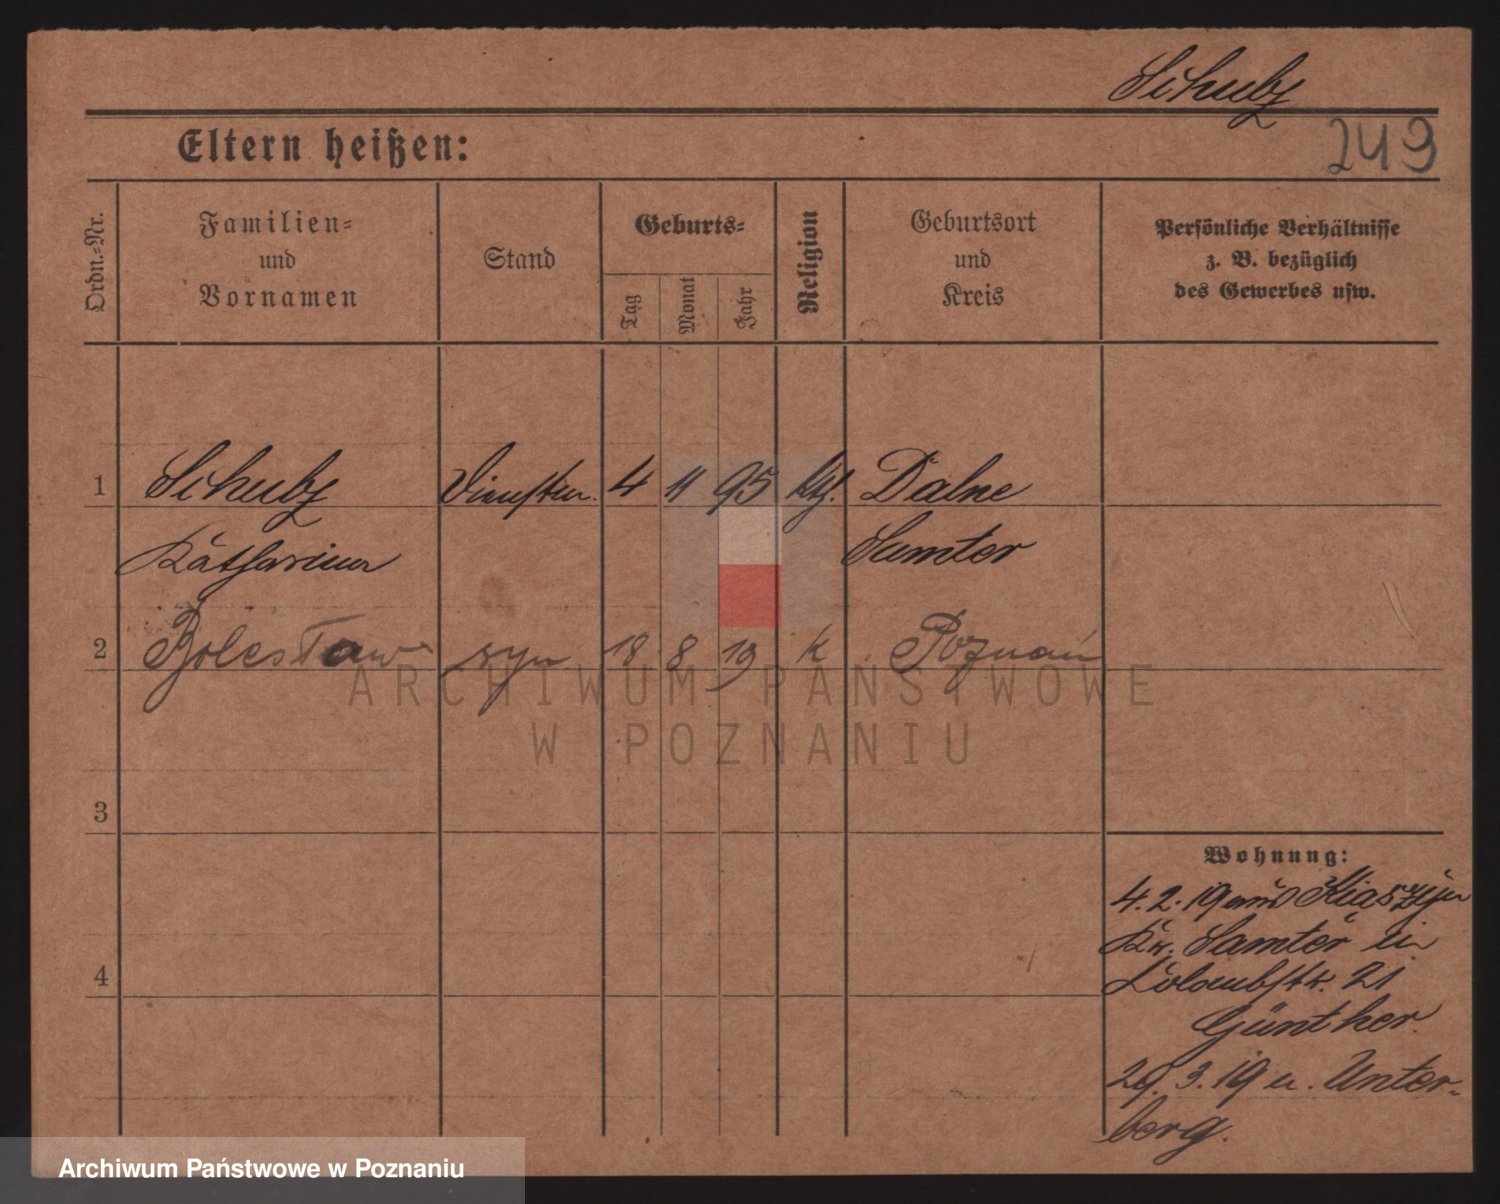 Schubz
249
Eltern heißen:
Ordn.-Nr.
Familien-
und
Vornamen
Stand
Geburts-
Tag
Monat
Jahr
Religion
Geburtsort
und
Kreis
Persönliche Verhältnisse
z. B. bezüglich
des Gewerbes usw.
1 Schubz 4 11 95 kth. Dalne
Katharina Samter
2 Bolesław syn 18 8 19 k Poznań
ARCHIWUM PAŃSTWOWE
W POZNANIU
3
4
Wohnung:
4. 2. 19 aus
Kr. Samter in
21
Günther.
29. 3. 19 n. Unter-
berg.
Archiwum Państwowe w Poznaniu